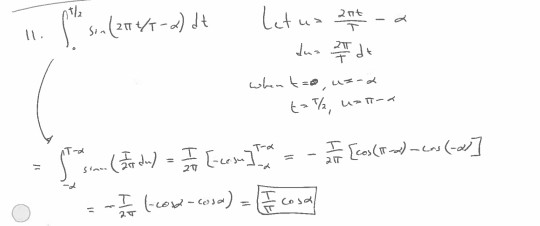 11. ∫₀^{T/2} sin(2πt/T - α) dt
Let u = 2πt/T - α
du = 2π/T dt
when t=0, u=-α
t=T/2, u=π-α
= ∫_{-α}^{π-α} sinu (T/2π du) = T/2π [-cosu]_{-α}^{π-α} = - T/2π [cos(π-α) - cos(-α)]
= - T/2π (-cosα - cosα) = T/π cosα